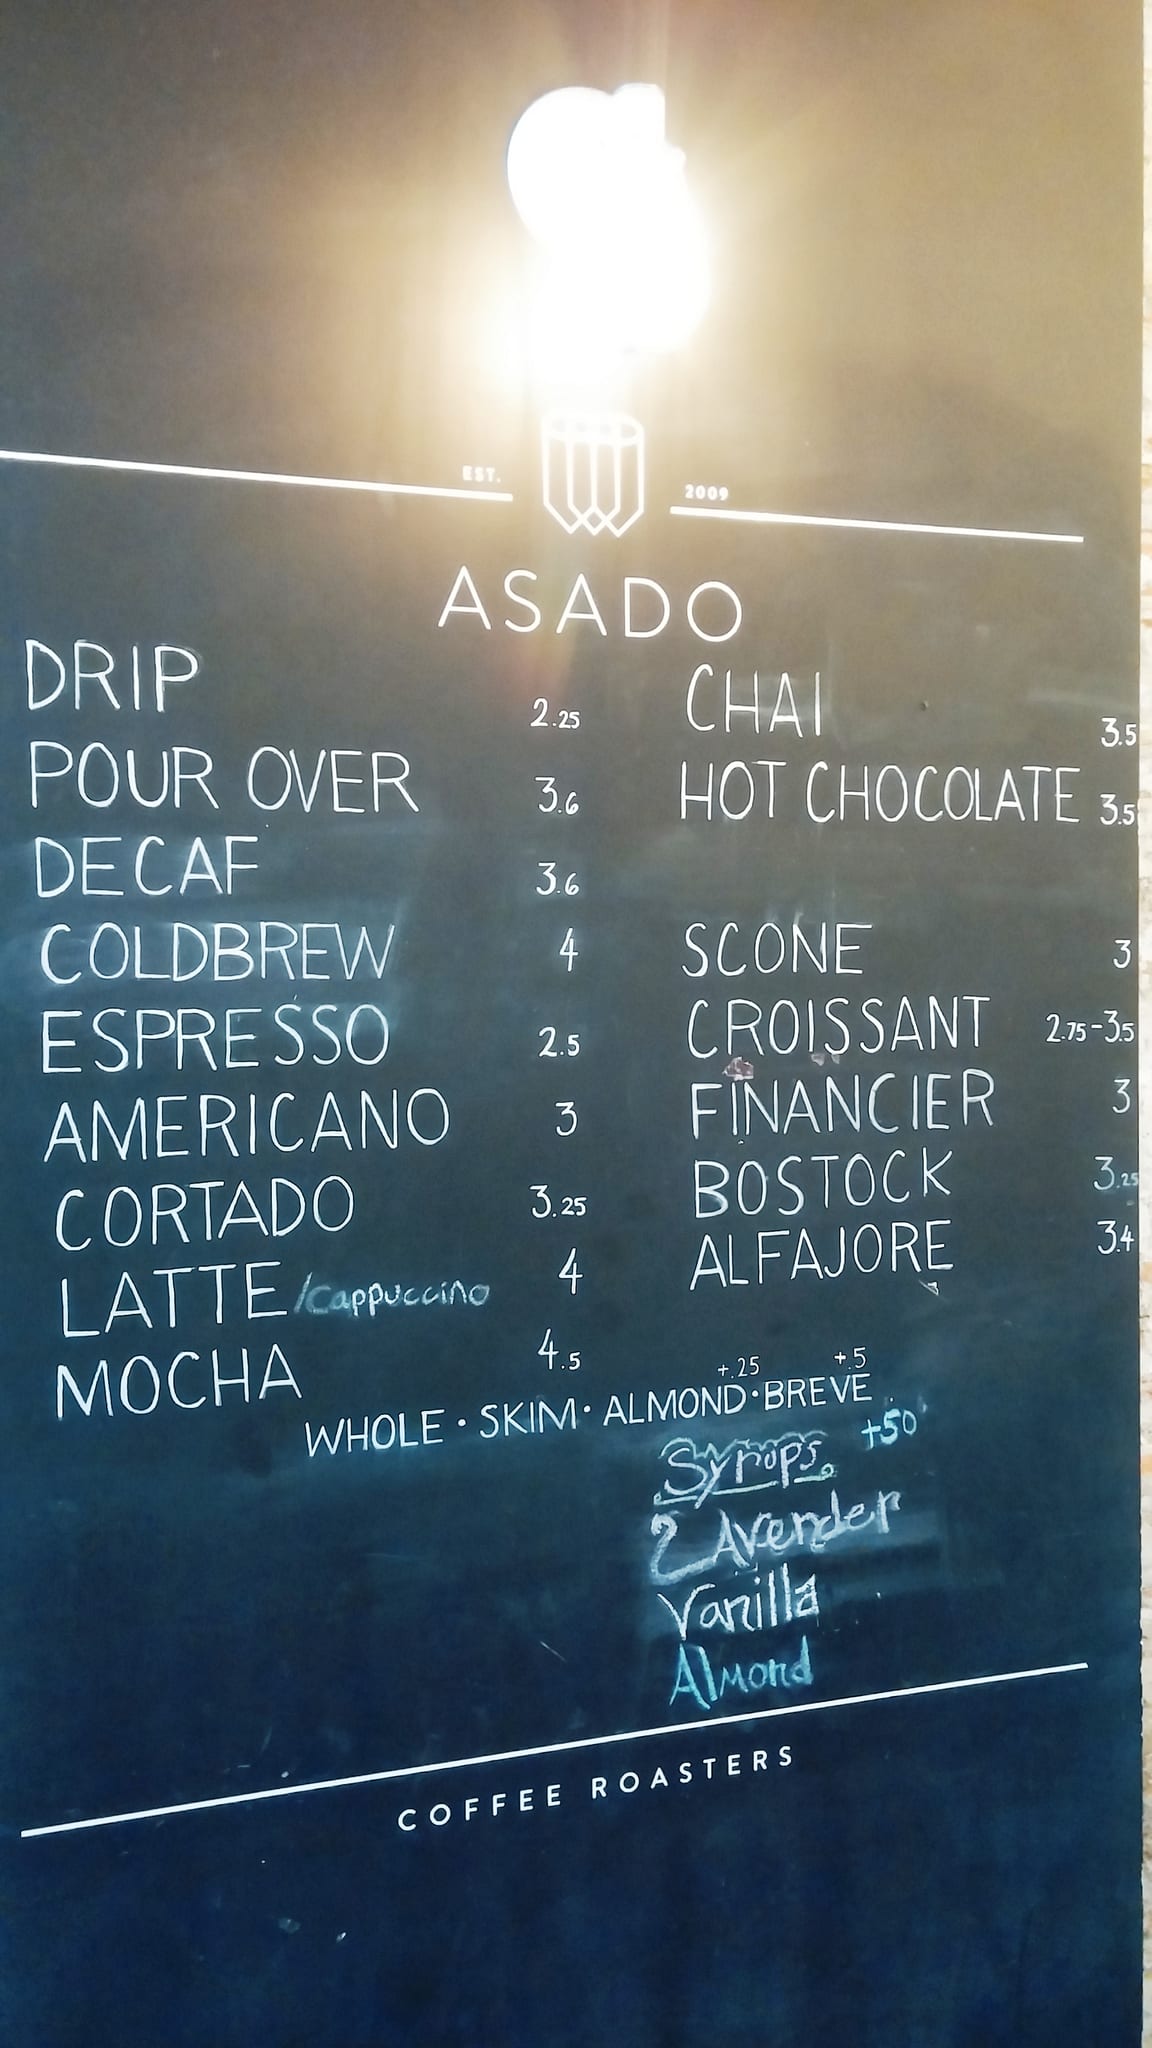 EST. 2009
ASADO
DRIP 2.25
POUR OVER 3.6
DECAF 3.6
COLDBREW 4
ESPRESSO 2.5
AMERICANO 3
CORTADO 3.25
LATTE/Cappuccino 4
MOCHA 4.5
CHAI 3.5
HOT CHOCOLATE 3.5
SCONE 3
CROISSANT 2.75-3.5
FINANCIER 3
BOSTOCK 3.25
ALFAJORE 3.4
+.25 +.5
WHOLE · SKIM · ALMOND · BREVE
Syrups +50
LAvender
Vanilla
Almond
COFFEE ROASTERS